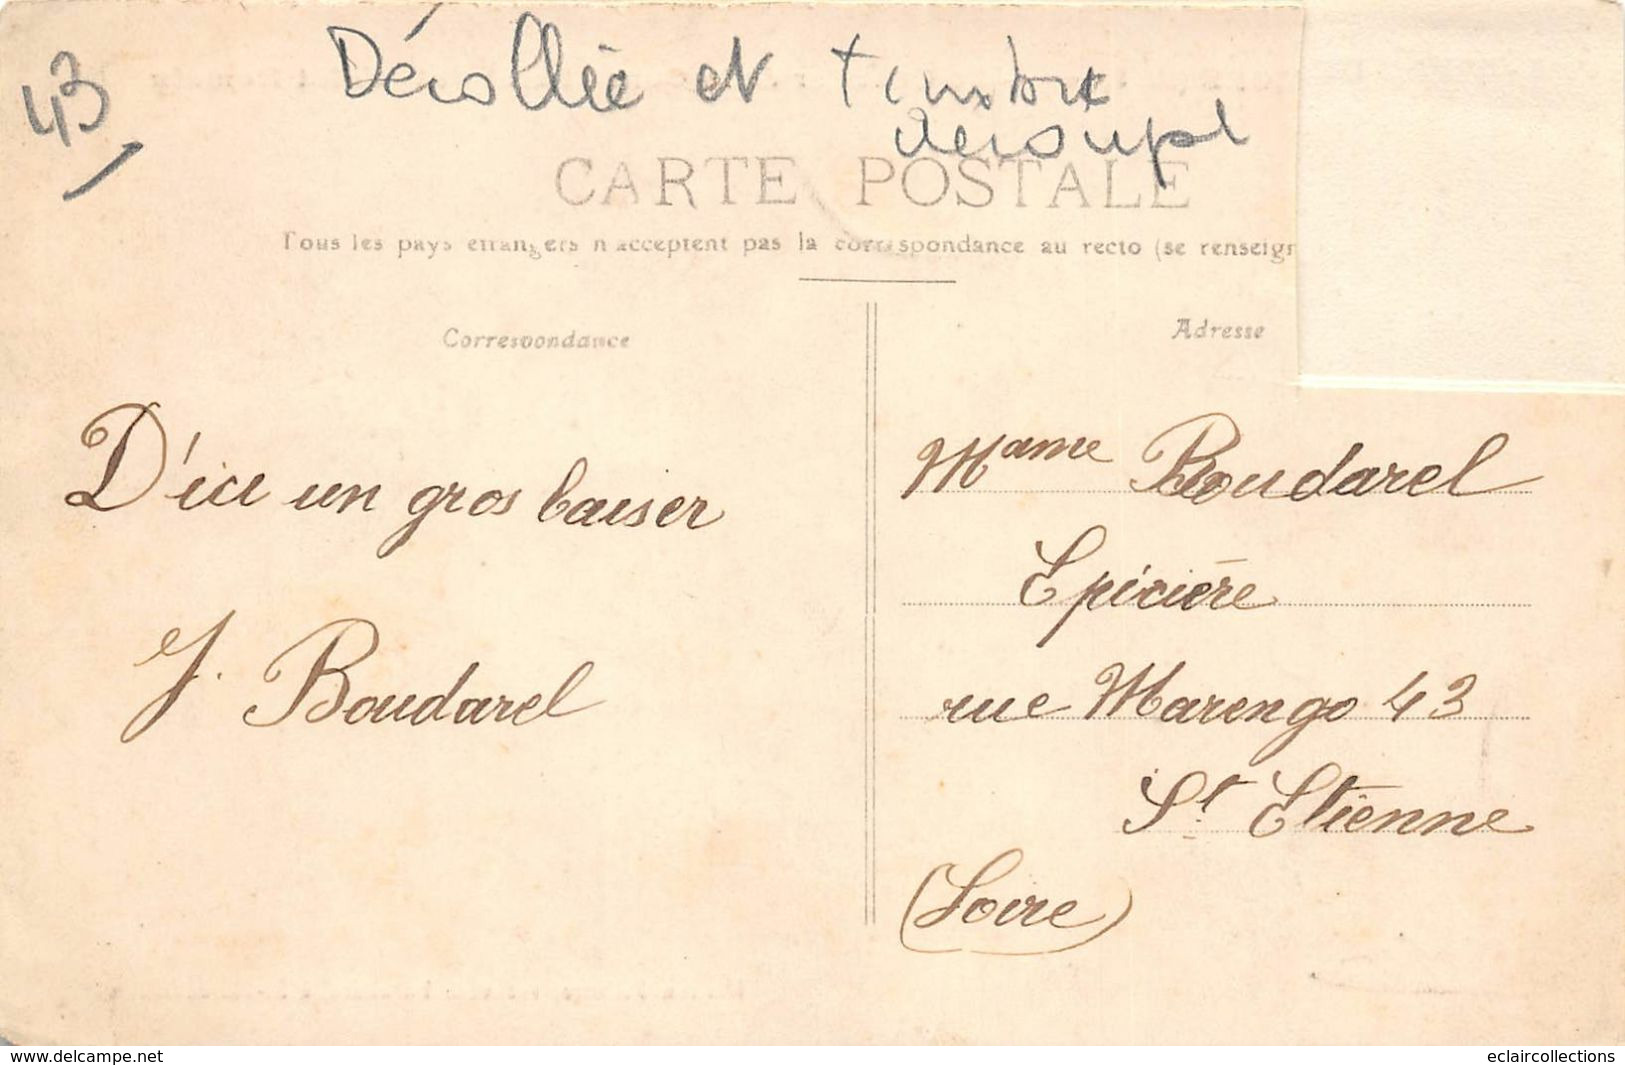 43
Décollée et timbre
decoupé
CARTE POSTALE
Tous les pays étrangers n'acceptent pas la correspondance au recto (se renseign
Correspondance
Adresse
D'ici un gros baiser
J. Boudarel
Mame Boudarel
Epicière
rue Marengo 43
St Etienne
(Loire)
www.delcampe.net
eclaircollections